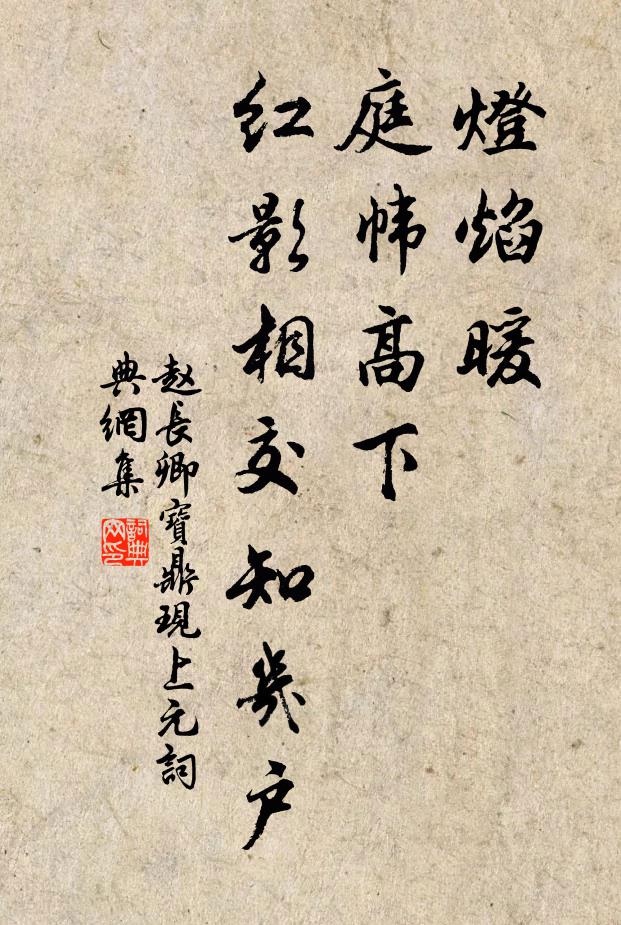 燈焰暖
庭幃高下
红影相交知幾户
赵長卿寶鼎現上元詞
典網集
詞典
网印